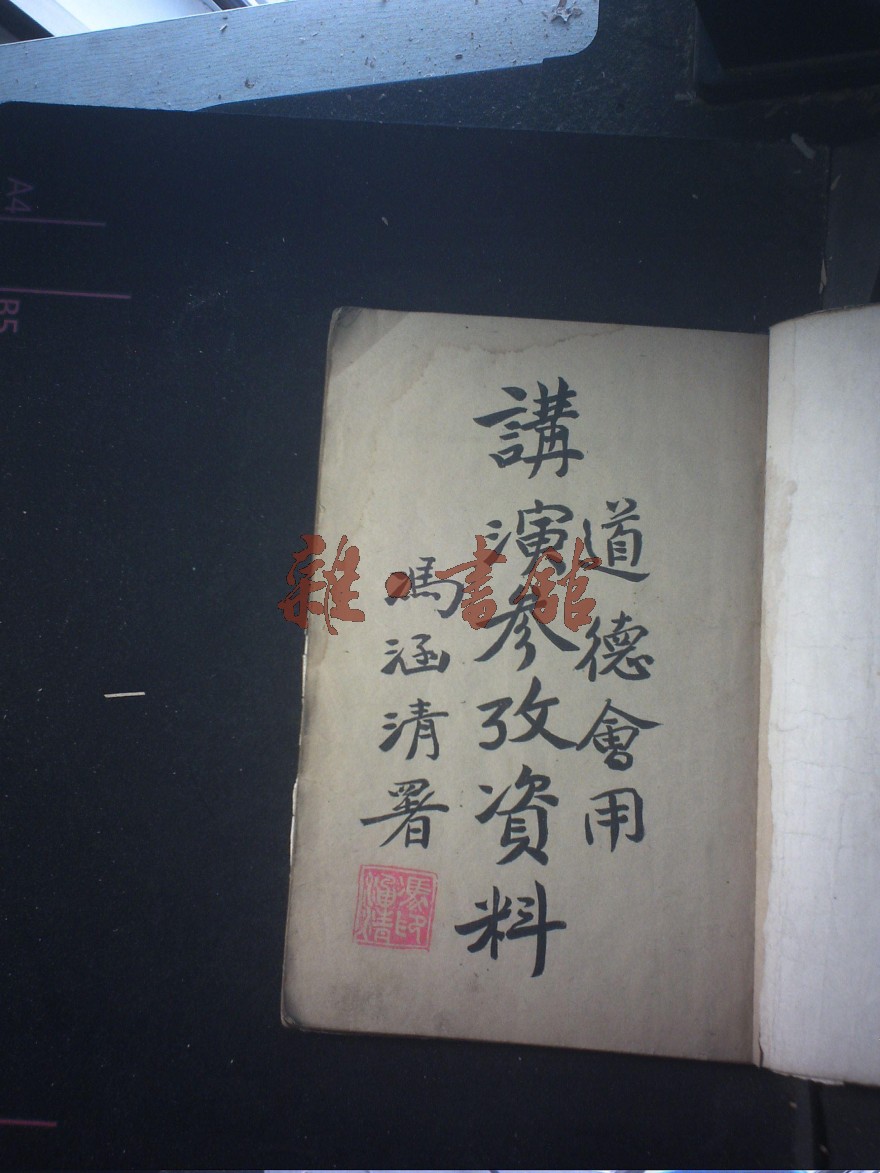 道德會用
講演參攷資料
馮涵清署
馮印
涵清
雜·書館
A4
B5